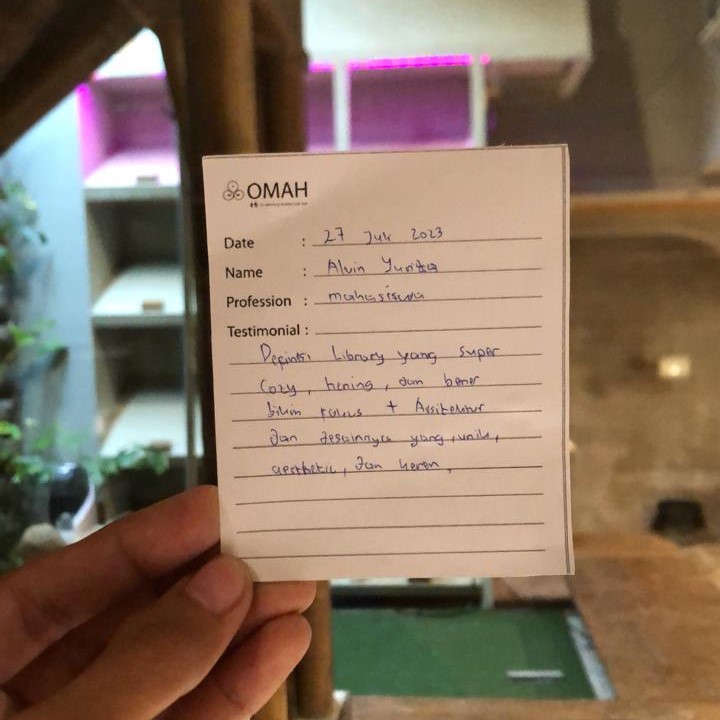 OMAH
Date : 27 Juli 2023
Name : Alvin Yunita
Profession : mahasiswa
Testimonial :
Depinisi Library yang super
Cozy, hening, dan bener
bikin fokus + Arsitektur
dan desainnya yang unik,
aesthetic, dan keren,